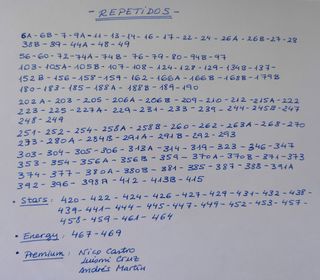 - REPETIDOS -
6A-6B-7-9A-11-13-14-16-17-22-24-26A-26B-27-28
38B-39-44A-48-49
56-60-72-74A-74B-76-79-80-94B-97
103-105A-105B-107-108-124-128-129-134B-137-
152B-156-158-159-162-166A-166B-168B-179B
180-183-185-188A-188B-189-190
202A-203-205-206A-206B-209-210-212-215A-222
223-225-227A-229-231-233-239-244-245B-247
248-249
251-252-254-258A-258B-260-262-263A-268-270
273-280A-284B-291A-291B-292-293
303-304-305-306-313A-314-319-323-346-347
353-354-356A-356B-359-370A-370B-371-373
374-377-380A-380B-381-385-387-388-391A
392-396-398A-412-413B-415
• Stars: 420-422-424-426-427-429-431-432-438-
439-441-444-445-447-449-452-453-457-
458-459-461-464
• Energy: 467-469
• Premium: Nico Castro
Luismi Cruz
Andrés Martín